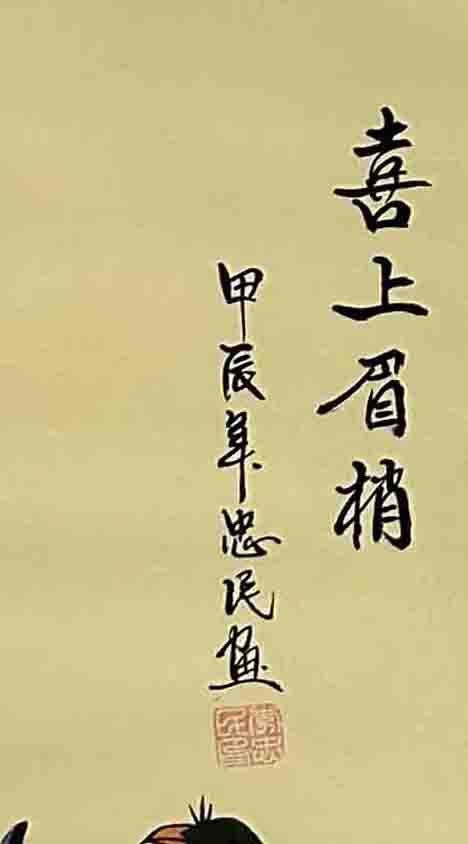 喜上眉梢
甲辰年忠民画